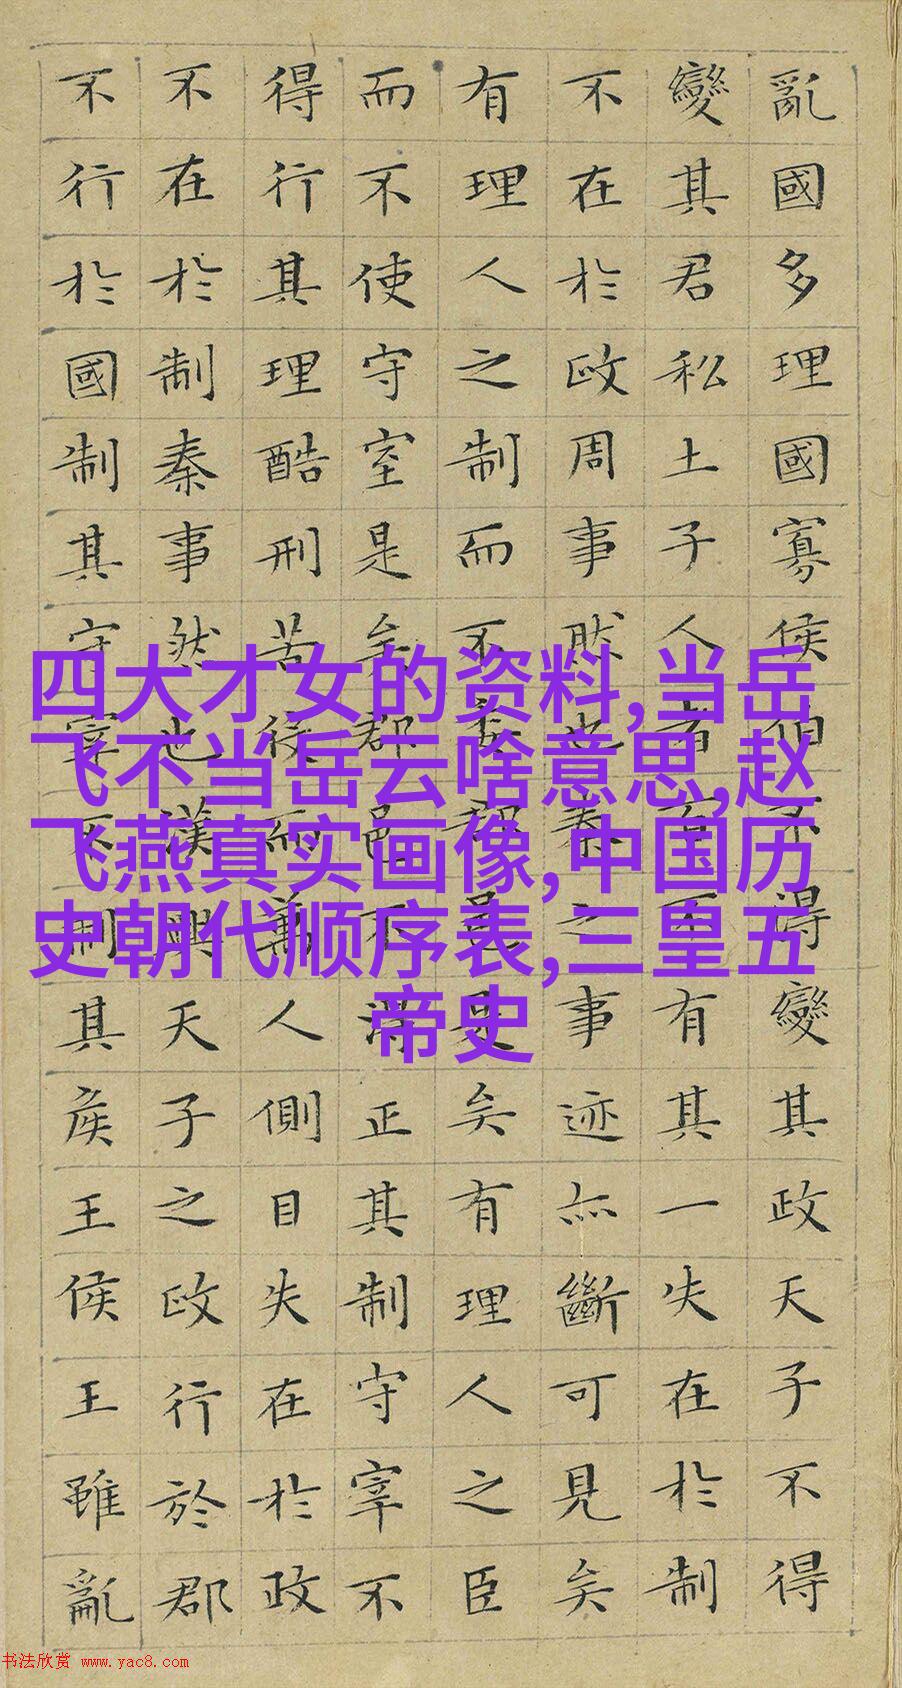 亂國多理國寡侯伯不得變其政天子不得
變其君私土子人者百不有其一失在於制
不在於政周事然也秦之事迹亦斷可見矣
有理人之制而不委郡邑是矣有理人之臣
而不使守宰是矣郡邑不得正其制守宰不
得行其理酷刑苦役而萬人側目失在於政
不在於制秦事然也漢興天子之政行於郡
不行於國制其守宰不制其侯王侯王雖亂
四大才女的资料,当岳
飞不当岳云啥意思,赵
飞燕真实画像,中国历
史朝代顺序表,三皇五
帝史
书法欣赏 www.yac8.com